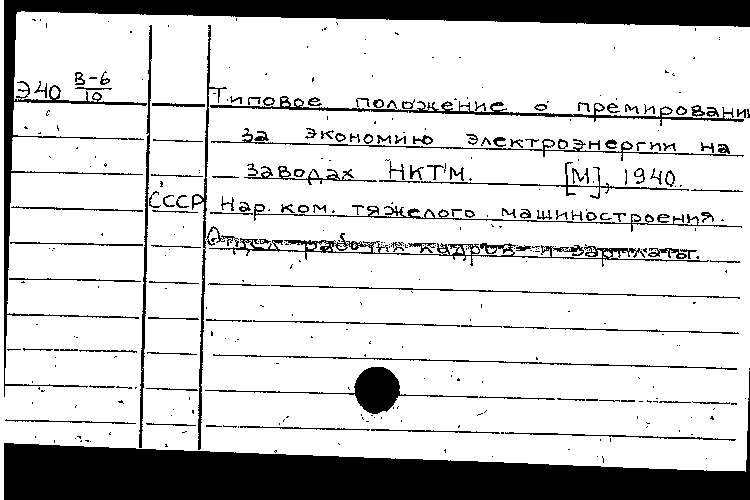 Э40 В-6/10 Типовое положение о премировании
за экономию электроэнергии на
заводах НКТМ. [М], 1940.
СССР Нар. ком. тяжелого машиностроения.
Отдел рабочих кадров и зарплаты.